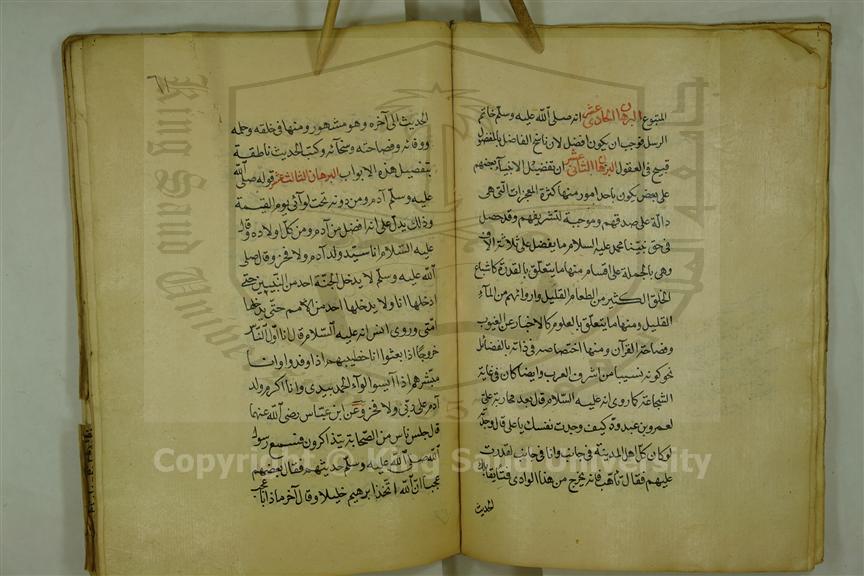 المتبوع البرهان الحادي عشر انه صلى الله عليه وسلم خاتم
الرسل فوجب ان يكون افضل لان نسخ الفاضل بالمفضول
قبيح في العقول البرهان الثاني عشر ان تفضيل الانبياء بعضهم
على بعض يكون باحد امور منها كثرة المعجزات التي هي
دالة على صدقهم وموجبة لتشريفهم وقد حصل
في حق نبينا محمد عليه السلام ما يفضل على ثلاثة الاف
وهي بالجملة على اقسام منها ما يتعلق بالقدرة كاشباع
الخلق الكثير من الطعام القليل واروائهم من المآء
القليل ومنها ما يتعلق بالعلوم كالاخبار عن الغيوب
وفصاحة القرآن ومنها اختصاصه في ذاته بالفضائل
نحو كونه نسيبا من اشرف العرب وايضا كان في غاية
الشجاعة كما روي انه عليه السلام قال بعد محاربة علي
لعمرو بن عبد ود كيف وجدت نفسك يا علي قال وجدتها
لو كان كل اهل المدينة في جانب وانا في جانب لقدرت
عليهم فقال تأهب فانه يخرج من هذا الوادي فتى يقاتلك
الحديث
٦١
الحديث الى آخره وهو مشهور ومنها في خلقه وحلمه
ووفائه وفصاحته وسخائه وكتب الحديث ناطقة
بتفصيل هذه الابواب البرهان الثالث عشر قوله صلى الله
عليه وسلم آدم ومن دونه تحت لوآئي يوم القيمة
وذلك يدل على انه افضل من آدم ومن كل اولاده وقال
عليه السلام انا سيد ولد آدم ولا فخر وقال صلى
الله عليه وسلم لا يدخل الجنة احد من النبيين حتى
ادخلها انا ولا يدخلها احد من الامم حتى يدخلها
امتي وروى انس انه عليه السلام قال انا اول الناس
خروجا اذا بعثوا انا خطيبهم اذا وفدوا وانا
مبشرهم اذا آيسوا لوآء الحمد بيدي وانا اكرم ولد
آدم على ربي ولا فخر وعن ابن عباس رضي الله عنهما
قال جلس ناس من الصحابة يتذاكرون فسمع رسول
الله صلى الله عليه وسلم حديثهم فقال بعضهم
عجبا ان الله اتخذ ابرهيم خليلا وقال آخر ماذا باعجب
Copyright © King Saud University
King Saud University